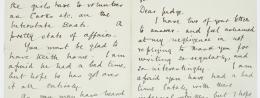 the girls have to volunteer
as Cooks etc. on the
Interstate Boats. A
pretty state of affairs.
You must be glad to
have Keith home. I am
afraid he had a bad time,
but hope he has got over
it all entirely.
Dear Judge.
I have two of your letters
to answer. and feel ashamed
at my negligence in not
replying to thank you for
writing so regularly and
so interestingly. I am
afraid you have had a bad
time lately with these
but I hope